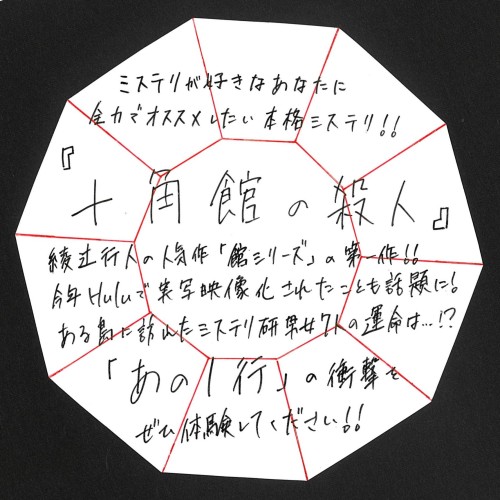 ミステリが好きなあなたに
全力でオススメしたい本格ミステリ!!
『十角館の殺人』
綾辻行人の人気作「館シリーズ」の第一作!!
今年Huluで実写映像化されたことも話題に!
ある島に訪れたミステリ研男女7人の運命は…!?
「あの1行」の衝撃を
ぜひ体験してください!!